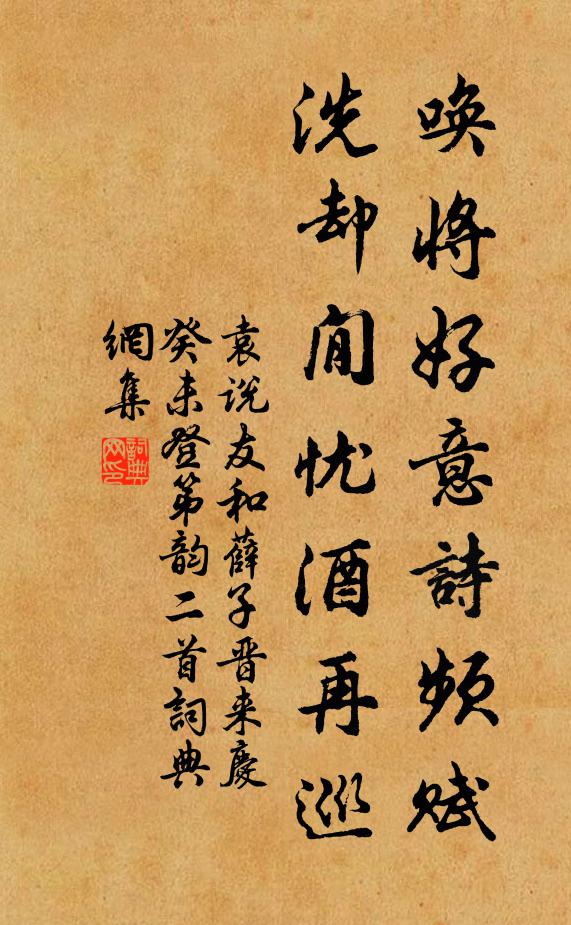 唤将好意詩頻赋
洗却闲忧酒再巡
袁说友和薛子晋来慶
癸未登第韵二首詞典
網集
詞典
网印